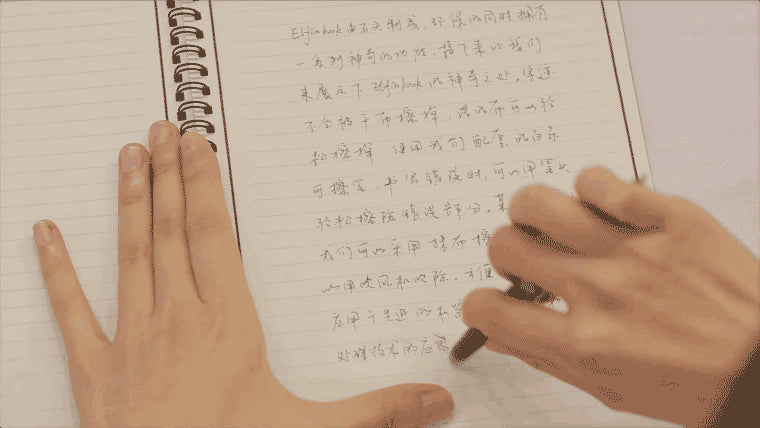 Elfinbook由石头制成，环保的同时拥有
一系列神奇的功能，接下来让我们
来展示下 Elfinbook的神奇之处。字迹
不会被干布擦掉，湿的布可以轻
松擦掉，使用我们配套的百乐
可擦笔，书写错误时，可以用笔头
轻松擦除错误部分。某
我们可以采用抹布擦
以用吹风机吹除，方便
应用于先进的
处理技术的应